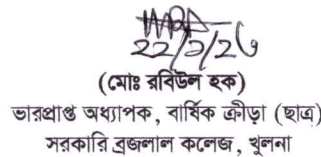 22/১/২৬
(মোঃ রবিউল হক)
ভারপ্রাপ্ত অধ্যাপক, বার্ষিক ক্রীড়া (ছাত্র)
সরকারি ব্রজলাল কলেজ, খুলনা